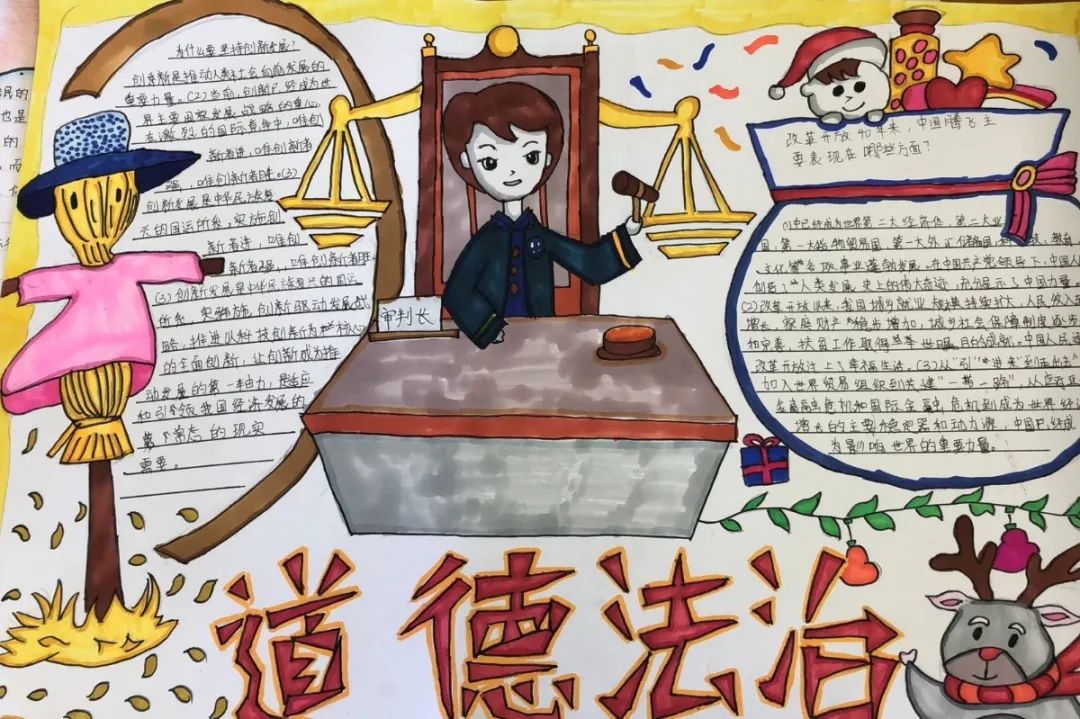 为什么要坚持创新发展？
创新是推动人类社会向前发展的
重要力量。(2)当前，创新已经成为世
界主要国家发展战略的重心
在激烈的国际竞争中，唯创
新者进，唯创新者
强，唯创新者胜。(3)
创新发展是中华民族复
兴的国运所系，实施创
新者进，唯创
新者强，唯创新者胜。
(3)创新发展是中华民族复兴的国运
所系 实施 创新驱动发展战
略，推进以科技创新为核心
的全面创新，让创新成为推
动发展的第一 动力，是适应
和引领我国经济发展的
常态 的 现实
需要。
审判长
改革开放40年来，中国腾飞主
要表现在哪些方面？
(1)中已经成为世界第二大经济体，第二大业
国，第一大货物贸易国，第一大外汇储备国，教育
文化 事业蓬勃发展。在中国共产党领导下，中国人
创造了人类发展史上的伟大奇迹，充分显示了中国力量。
(2)改革开放以来，我国城乡就业规模持续扩大，人民收入
增长，家庭财产稳步增加，城乡社会保障制度逐步
和完善，扶贫工作取得举世瞩目的成就。中国人民
改革开放过上了幸福生活。(3)从“引进来”到走出去”
加入世界贸易组织到共建“一带一路”，从应对亚
金融危机和国际金融危机到成为世界经
增长的主要稳定器和动力源，中国已经成
为影响世界的重要力量。
道德法治